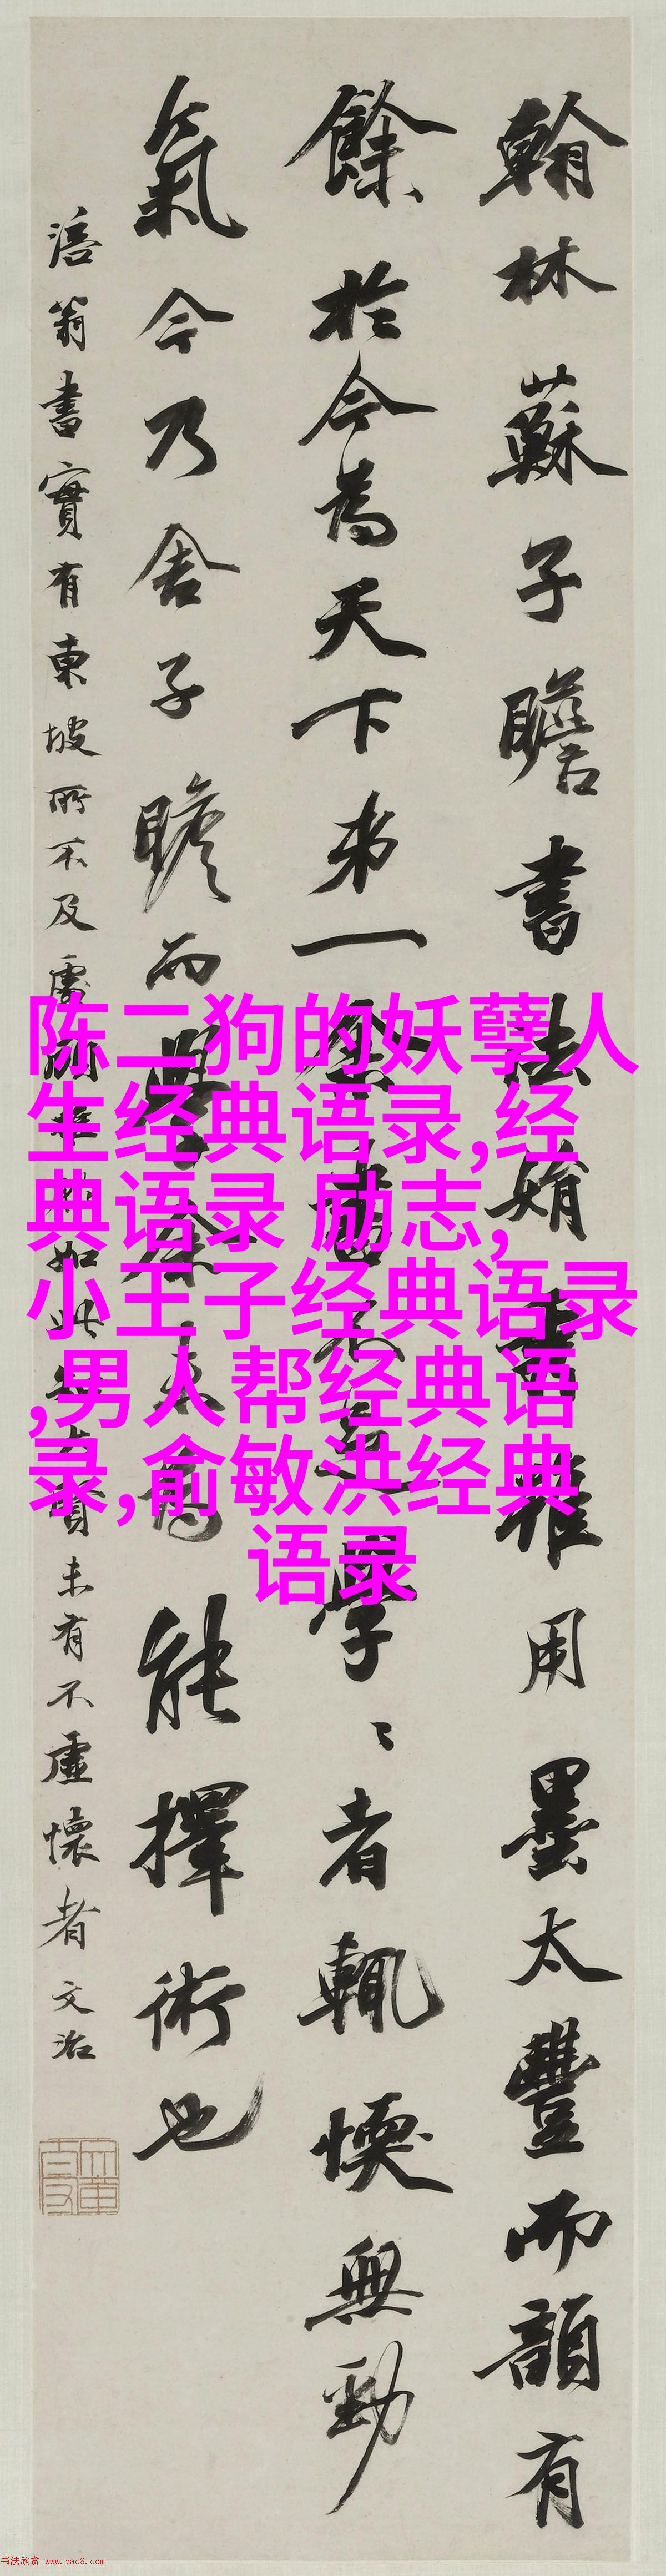 翰林蘇子瞻書法娟秀雖用墨太豐而韻有
餘於今為天下第一余書不足學學〻者輒愞無勁
氣今乃舍子瞻而學余未為能擇術也
涪翁書實有東坡所不及處
如此
未有不虛懷者文治
陈二狗的妖孽人
生经典语录,经
典语录 励志,
小王子经典语录
,男人帮经典语
录,俞敏洪经典
语录
书法欣赏 www.yac8.com